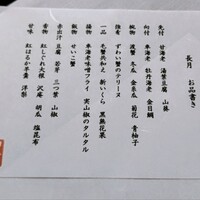 長月 お品書き
先付 甘海老 湯葉豆腐 山葵
向付 車海老 牡丹海老 金目鯛
波蟹 冬瓜 金糸瓜 菊花 青柚子
推肴 ずわい蟹のテリーヌ
一品 毛蟹共和え 新いくら 黒無花果
揚物 車海老味噌フライ 実山椒のタルタル
御飯 せいこ蟹
赤出汁 豆腐 若芽 三つ葉 山椒
香物 紅しぐれ大根 沢庵 胡瓜 塩昆布
甘味 紅はるか羊羹 洋梨